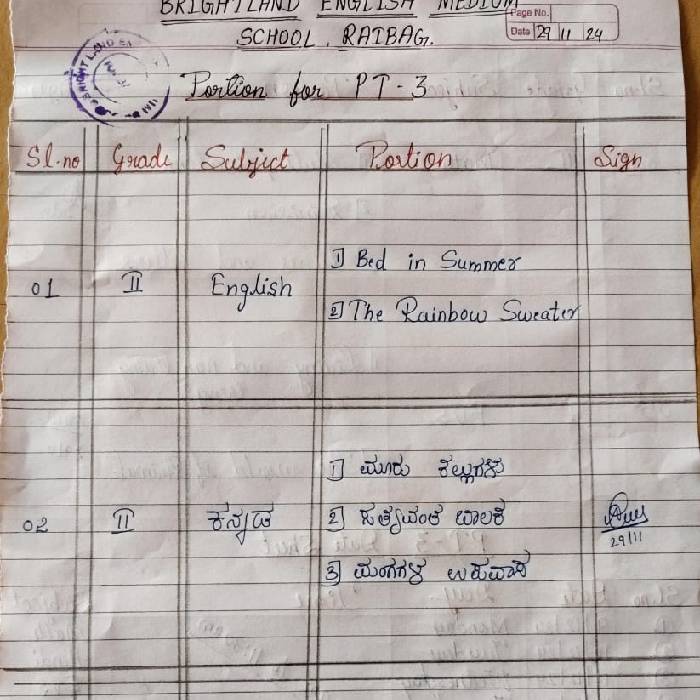 BRIGHTLAND ENGLISH MEDIUM
SCHOOL. RAIBAG.
Page No.
Date 29 11 24
Portion for PT-3
Sl.no Grade Subject Portion Sign
01 II English
1) Bed in Summer
2) The Rainbow Sweater
02 II ಕನ್ನಡ
1) ಮೂರು ಕಲ್ಲುಗಳು
2) ಸತ್ಯವಂತ ಬಾಲಕ
3) ಮಂಗಗಳ ಉಪವಾಸ
29/11